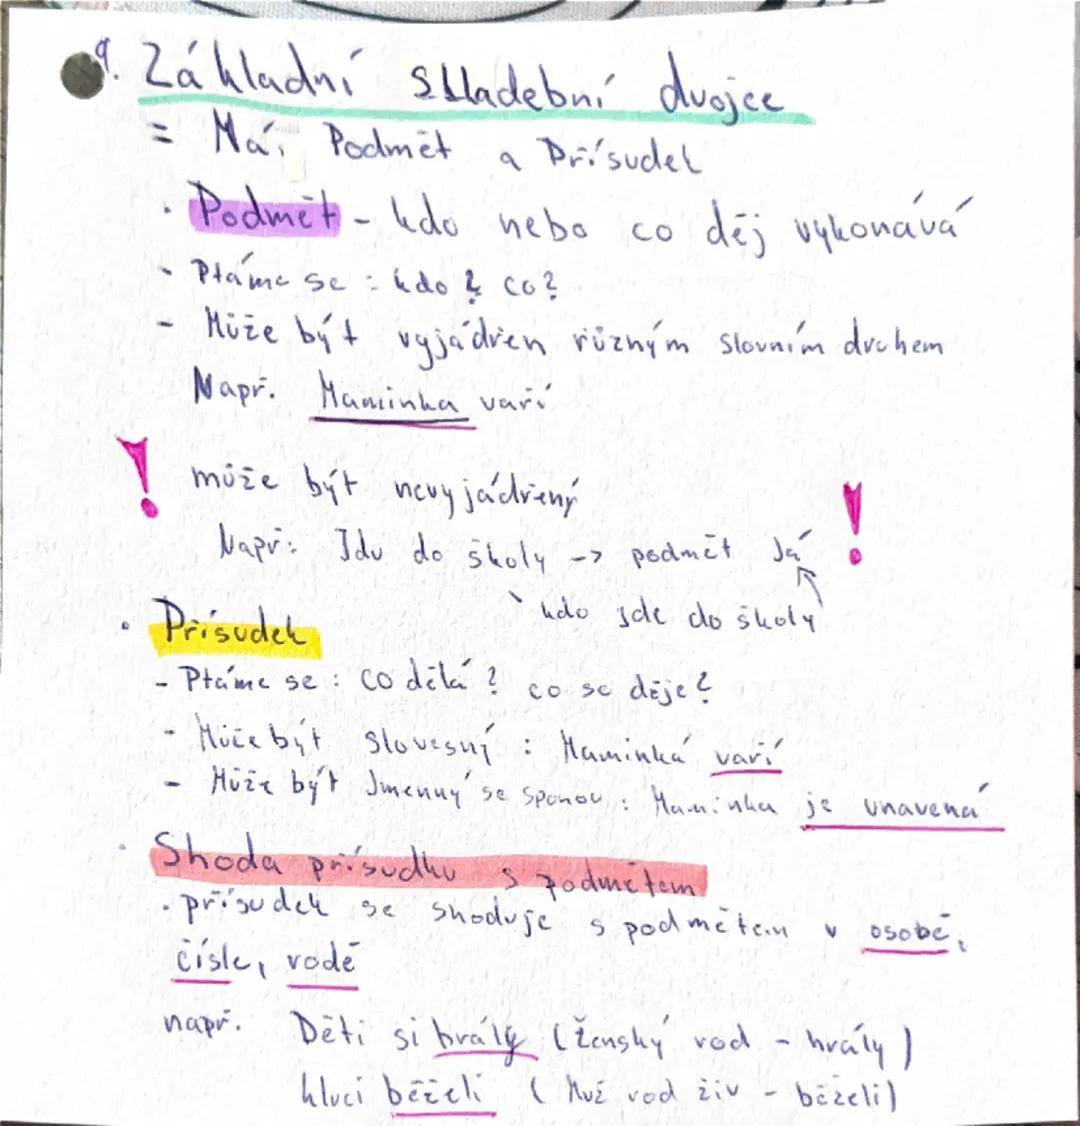 9. Základní skladební dvojce
= Má, Podmět a Přísudek
· Podmět - kdo nebo co děj vykonává
- Ptáme se : kdo? co?
- Může být vyjádřen různým slovním druhem
Např. Maminka vaří
! může být nevyjádřený !
Např: Jdu do školy -> podmět Já
kdo jde do školy
· Přísudek
- Ptáme se : co dělá? co se děje?
- Může být slovesný : Maminká vaří
- Může být Jmenný se sponou : Maminka je unavená
· Shoda přísudku s podmětem
· přísudek se shoduje s podmětem v osobě,
čísle, rodě
např. Děti si hrály (Ženský rod - hrály)
kluci běželi (Muž rod živ - běželi)